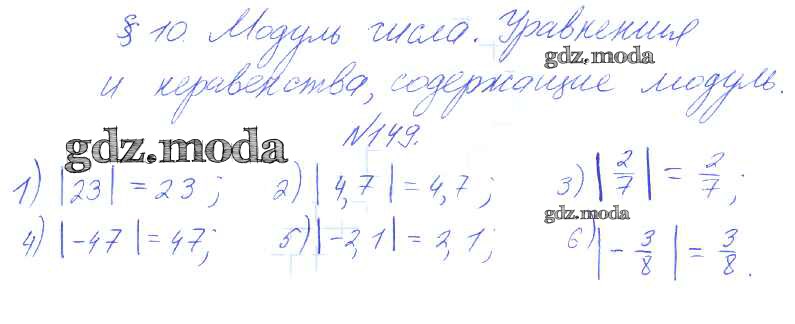 § 10. Модуль числа. Уравнения
gdz.moda
и неравенства, содержащие модуль.
№149.
gdz.moda
1) |23| = 23; 2) |4,7| = 4,7; 3) |2/7| = 2/7;
gdz.moda
4) |-47| = 47; 5) |-2,1| = 2,1; 6) |-3/8| = 3/8.